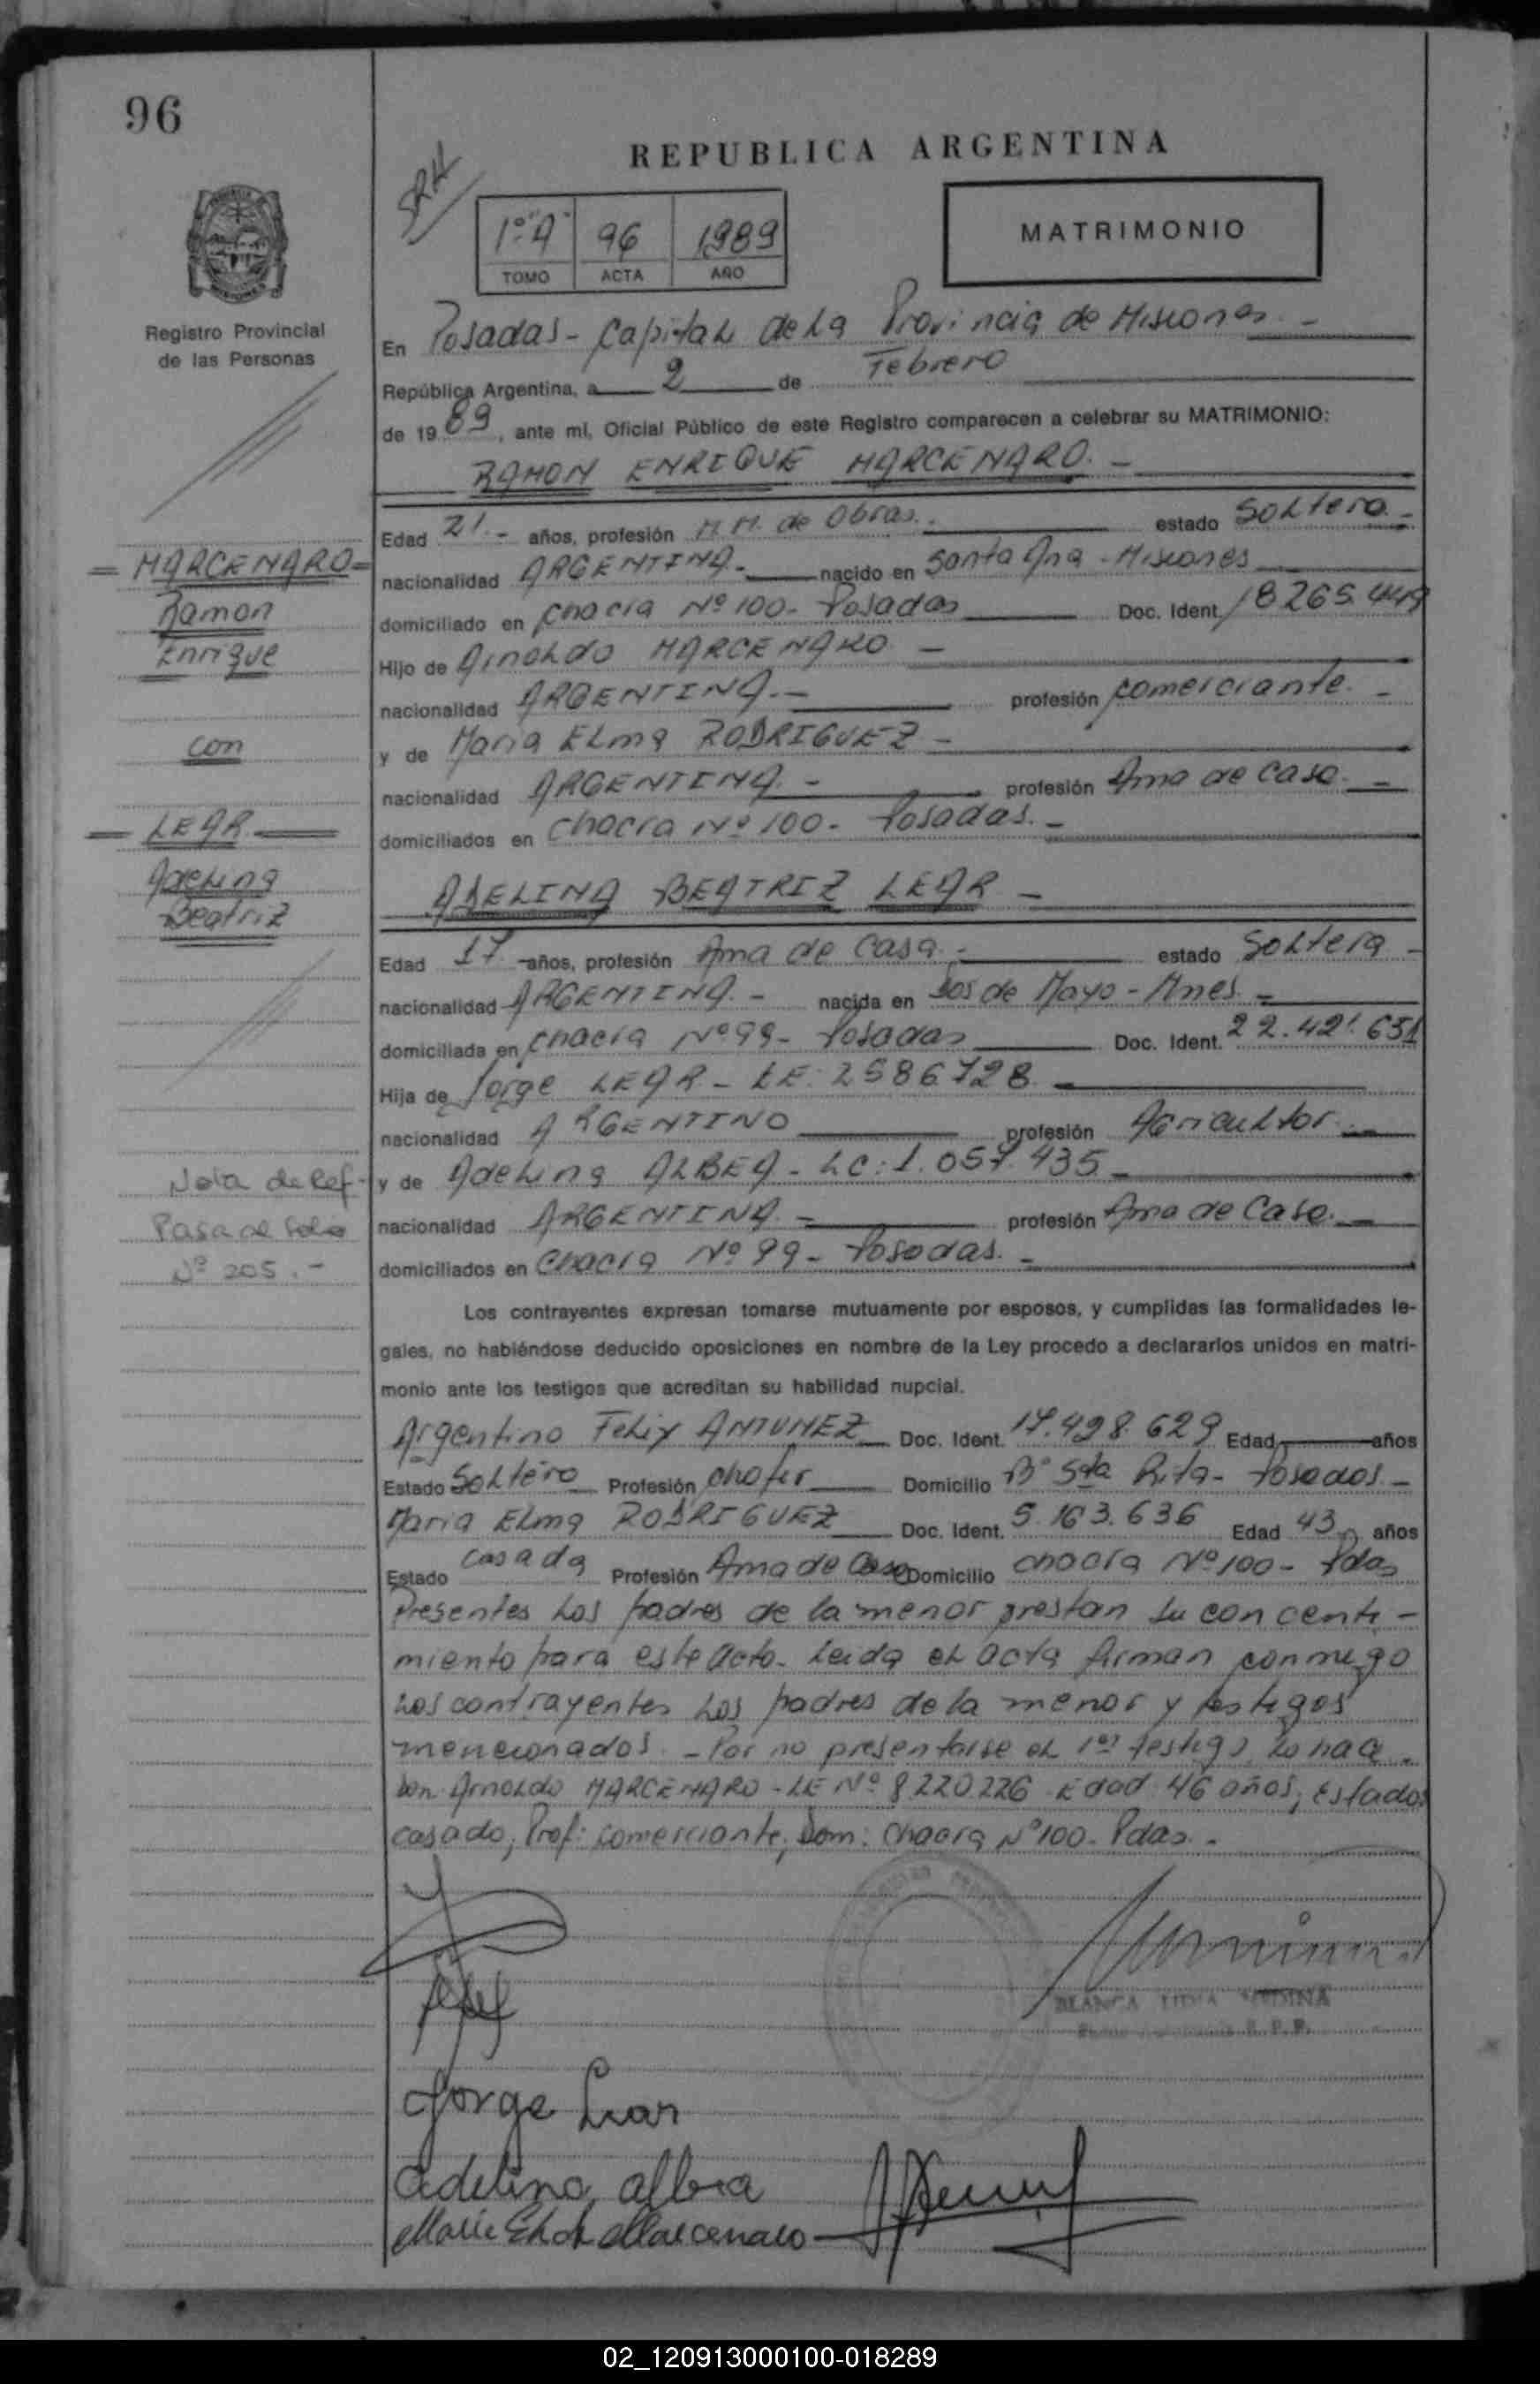 96
REPUBLICA ARGENTINA
1º "A" 96 1989
TOMO ACTA AÑO
MATRIMONIO
Registro Provincial
de las Personas
En Posadas - Capital de la Provincia de Misiones. -
República Argentina, a 2 de Febrero
de 1989, ante mí, Oficial Público de este Registro comparecen a celebrar su MATRIMONIO:
RAMON ENRIQUE MARCENARO. -
Edad 21.- años, profesión M.M. de Obras.- estado Soltero -
= MARCENARO =
nacionalidad ARGENTINA.- nacido en Santa Ana - Misiones
Ramon
domiciliado en Chacra Nº 100 - Posadas Doc. Ident. 18.265.449
Enrique
Hijo de Arnoldo MARCENARO -
nacionalidad ARGENTINA.- profesión comerciante. -
con
y de Maria Elma RODRIGUEZ -
nacionalidad ARGENTINA. - profesión Ama de Casa. -
— LEAR —
domiciliados en Chacra Nº 100 - Posadas. -
Adelina
Beatriz
ADELINA BEATRIZ LEAR -
Edad 17 - años, profesión Ama de Casa - estado Soltera -
nacionalidad ARGENTINA. - nacida en Dos de Mayo - Mnes. -
domiciliada en Chacra Nº 99 - Posadas Doc. Ident. 22.421.651
Hija de Jorge LEAR - LE: 2586728. -
nacionalidad ARGENTINO profesión Agricultor. -
Nota de Ref.-
y de Adelina ALBEA - LC: 1.057.435 -
Pasa al folio
nacionalidad ARGENTINA. - profesión Ama de Casa. -
Nº 205. -
domiciliados en Chacra Nº 99 - Posadas. -
Los contrayentes expresan tomarse mutuamente por esposos, y cumplidas las formalidades le-
gales, no habiéndose deducido oposiciones en nombre de la Ley procedo a declararlos unidos en matri-
monio ante los testigos que acreditan su habilidad nupcial.
Argentino Felix ANTUNEZ Doc. Ident. 17.498.629 Edad años
Estado Soltero Profesión Chofer Domicilio Bº Sta Rita - Posadas -
Maria Elma RODRIGUEZ Doc. Ident. 5.163.636 Edad 43 años
Estado Casada Profesión Ama de Casa Domicilio Chacra Nº 100 - Pdas
Presentes los padres de la menor prestan su concenti-
miento para este acto. Leida el acta firman conmigo
los contrayentes los padres de la menor y testigos
mencionados. - Por no presentarse el 1er testigo lo hace
Don Arnoldo MARCENARO - LE Nº 8220226 Edad 46 años, Estado
casado, Prof: comerciante, Dom: Chacra Nº 100 - Pdas. -
BLANCA LIDIA MEDINA
R. P. P.
Jorge Lear
Adelina Albea
Marcenaro
02_120913000100-018289